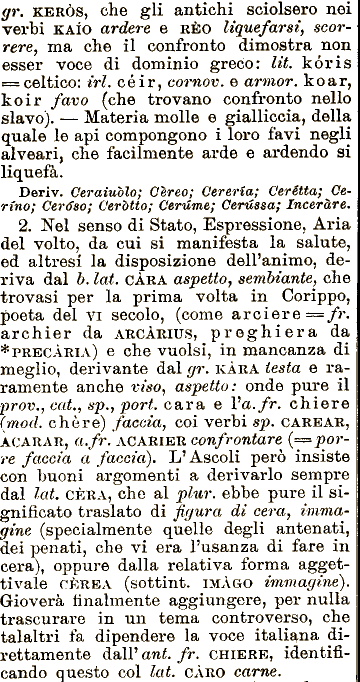 gr. KERÒS, che gli antichi sciolsero nei
verbi KAÍO ardere e RÈO liquefarsi, scor-
rere, ma che il confronto dimostra non
esser voce di dominio greco: lit. kóris
= celtico: irl. céir, cornov. e armor. koar,
koir favo (che trovano confronto nello
slavo). — Materia molle e gialliccia, della
quale le api compongono i loro favi negli
alveari, che facilmente arde e ardendo si
liquefà.
Deriv. Ceraiuòlo; Cèreo; Cerería; Cerétta; Ce-
ríno; Ceróso; Ceròtto; Cerúme; Cerússa; Inceràre.
2. Nel senso di Stato, Espressione, Aria
del volto, da cui si manifesta la salute,
ed altresì la disposizione dell'animo, de-
riva dal b. lat. CÀRA aspetto, sembiante, che
trovasi per la prima volta in Corippo,
poeta del VI secolo, (come arciere = fr.
archier da ARCÀRIUS, preghiera da
*PRECÀRIA) e che vuolsi, in mancanza di
meglio, derivante dal gr. KÀRA testa e ra-
ramente anche viso, aspetto: onde pure il
prov., cat., sp., port. cara e l'a. fr. chiere
(mod. chère) faccia, coi verbi sp. CAREAR,
ACARAR, a. fr. ACARIER confrontare (= por-
re faccia a faccia). L'Ascoli però insiste
con buoni argomenti a derivarlo sempre
dal lat. CÈRA, che al plur. ebbe pure il si-
gnificato traslato di figura di cera, imma-
gine (specialmente quelle degli antenati,
dei penati, che vi era l'usanza di fare in
cera), oppure dalla relativa forma agget-
tivale CÈREA (sottint. IMÀGO immagine).
Gioverà finalmente aggiungere, per nulla
trascurare in un tema controverso, che
talaltri fa dipendere la voce italiana di-
rettamente dall'ant. fr. CHIERE, identifi-
cando questo col lat. CÀRO carne.